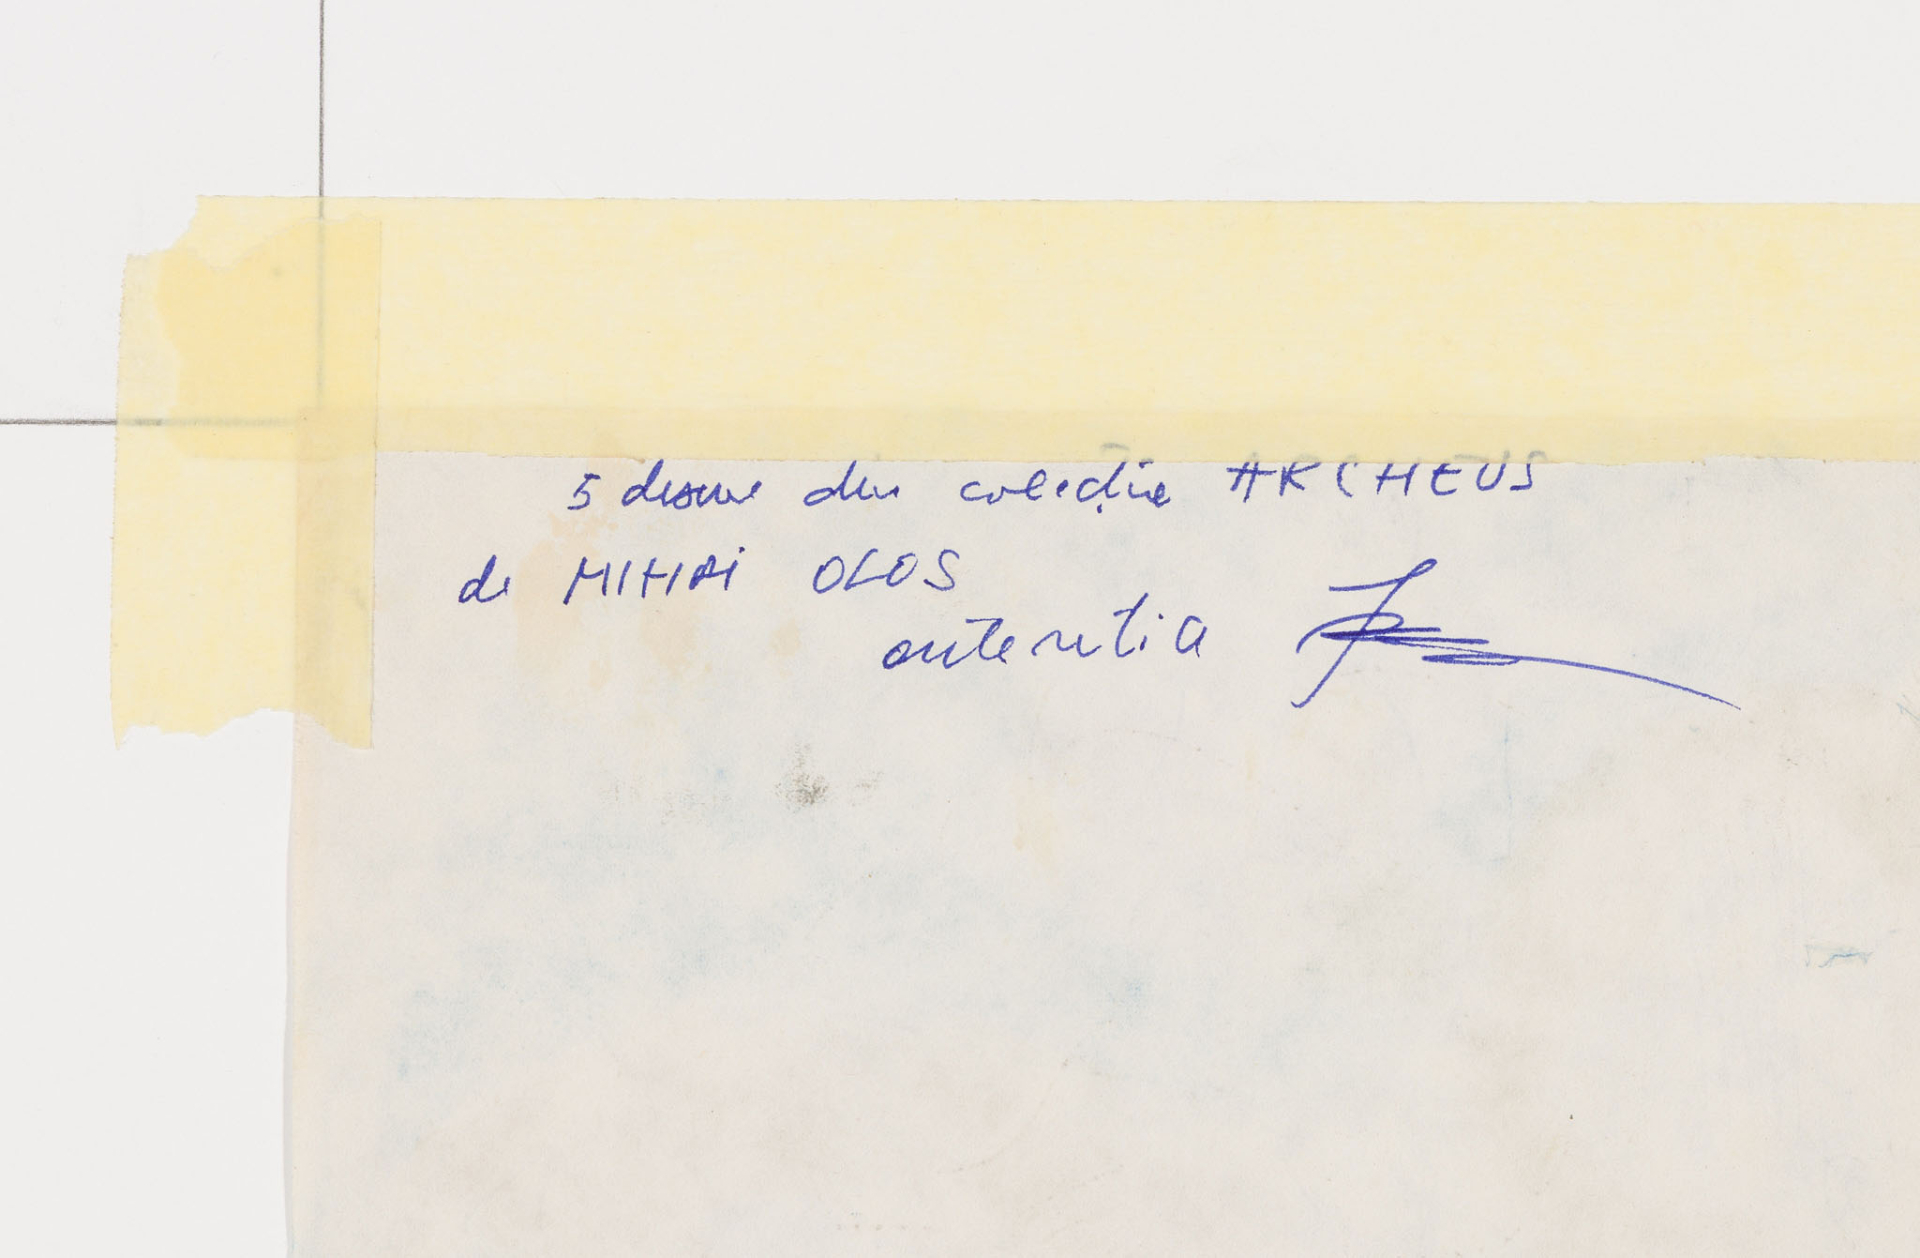 5 desene din colecția ARCHEUS
de MIHAI OLOS
autentia